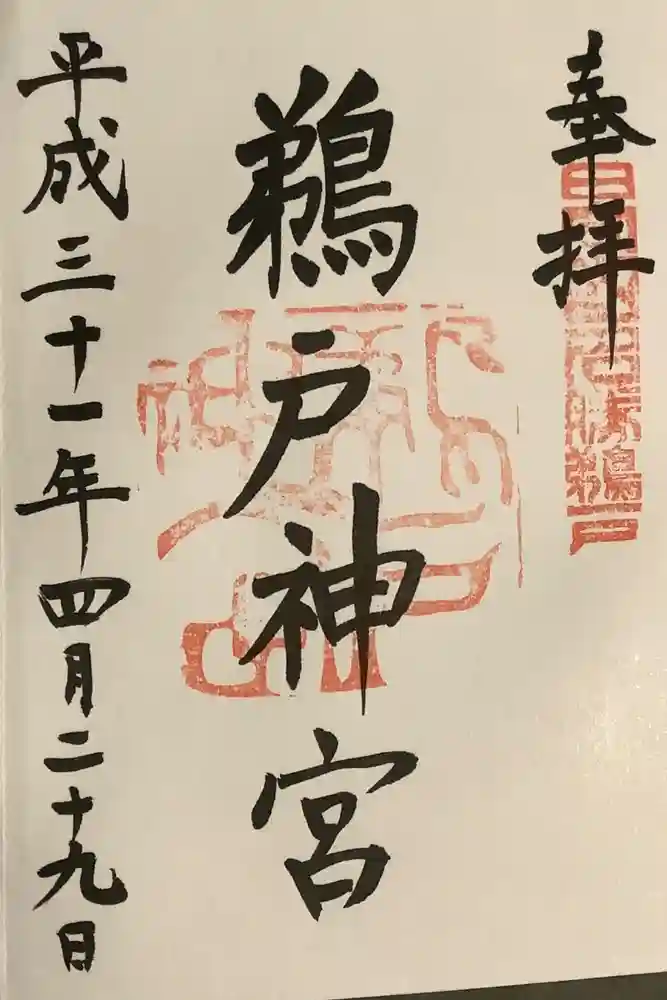 奉拝
鵜戸神宮
平成三十一年四月二十九日